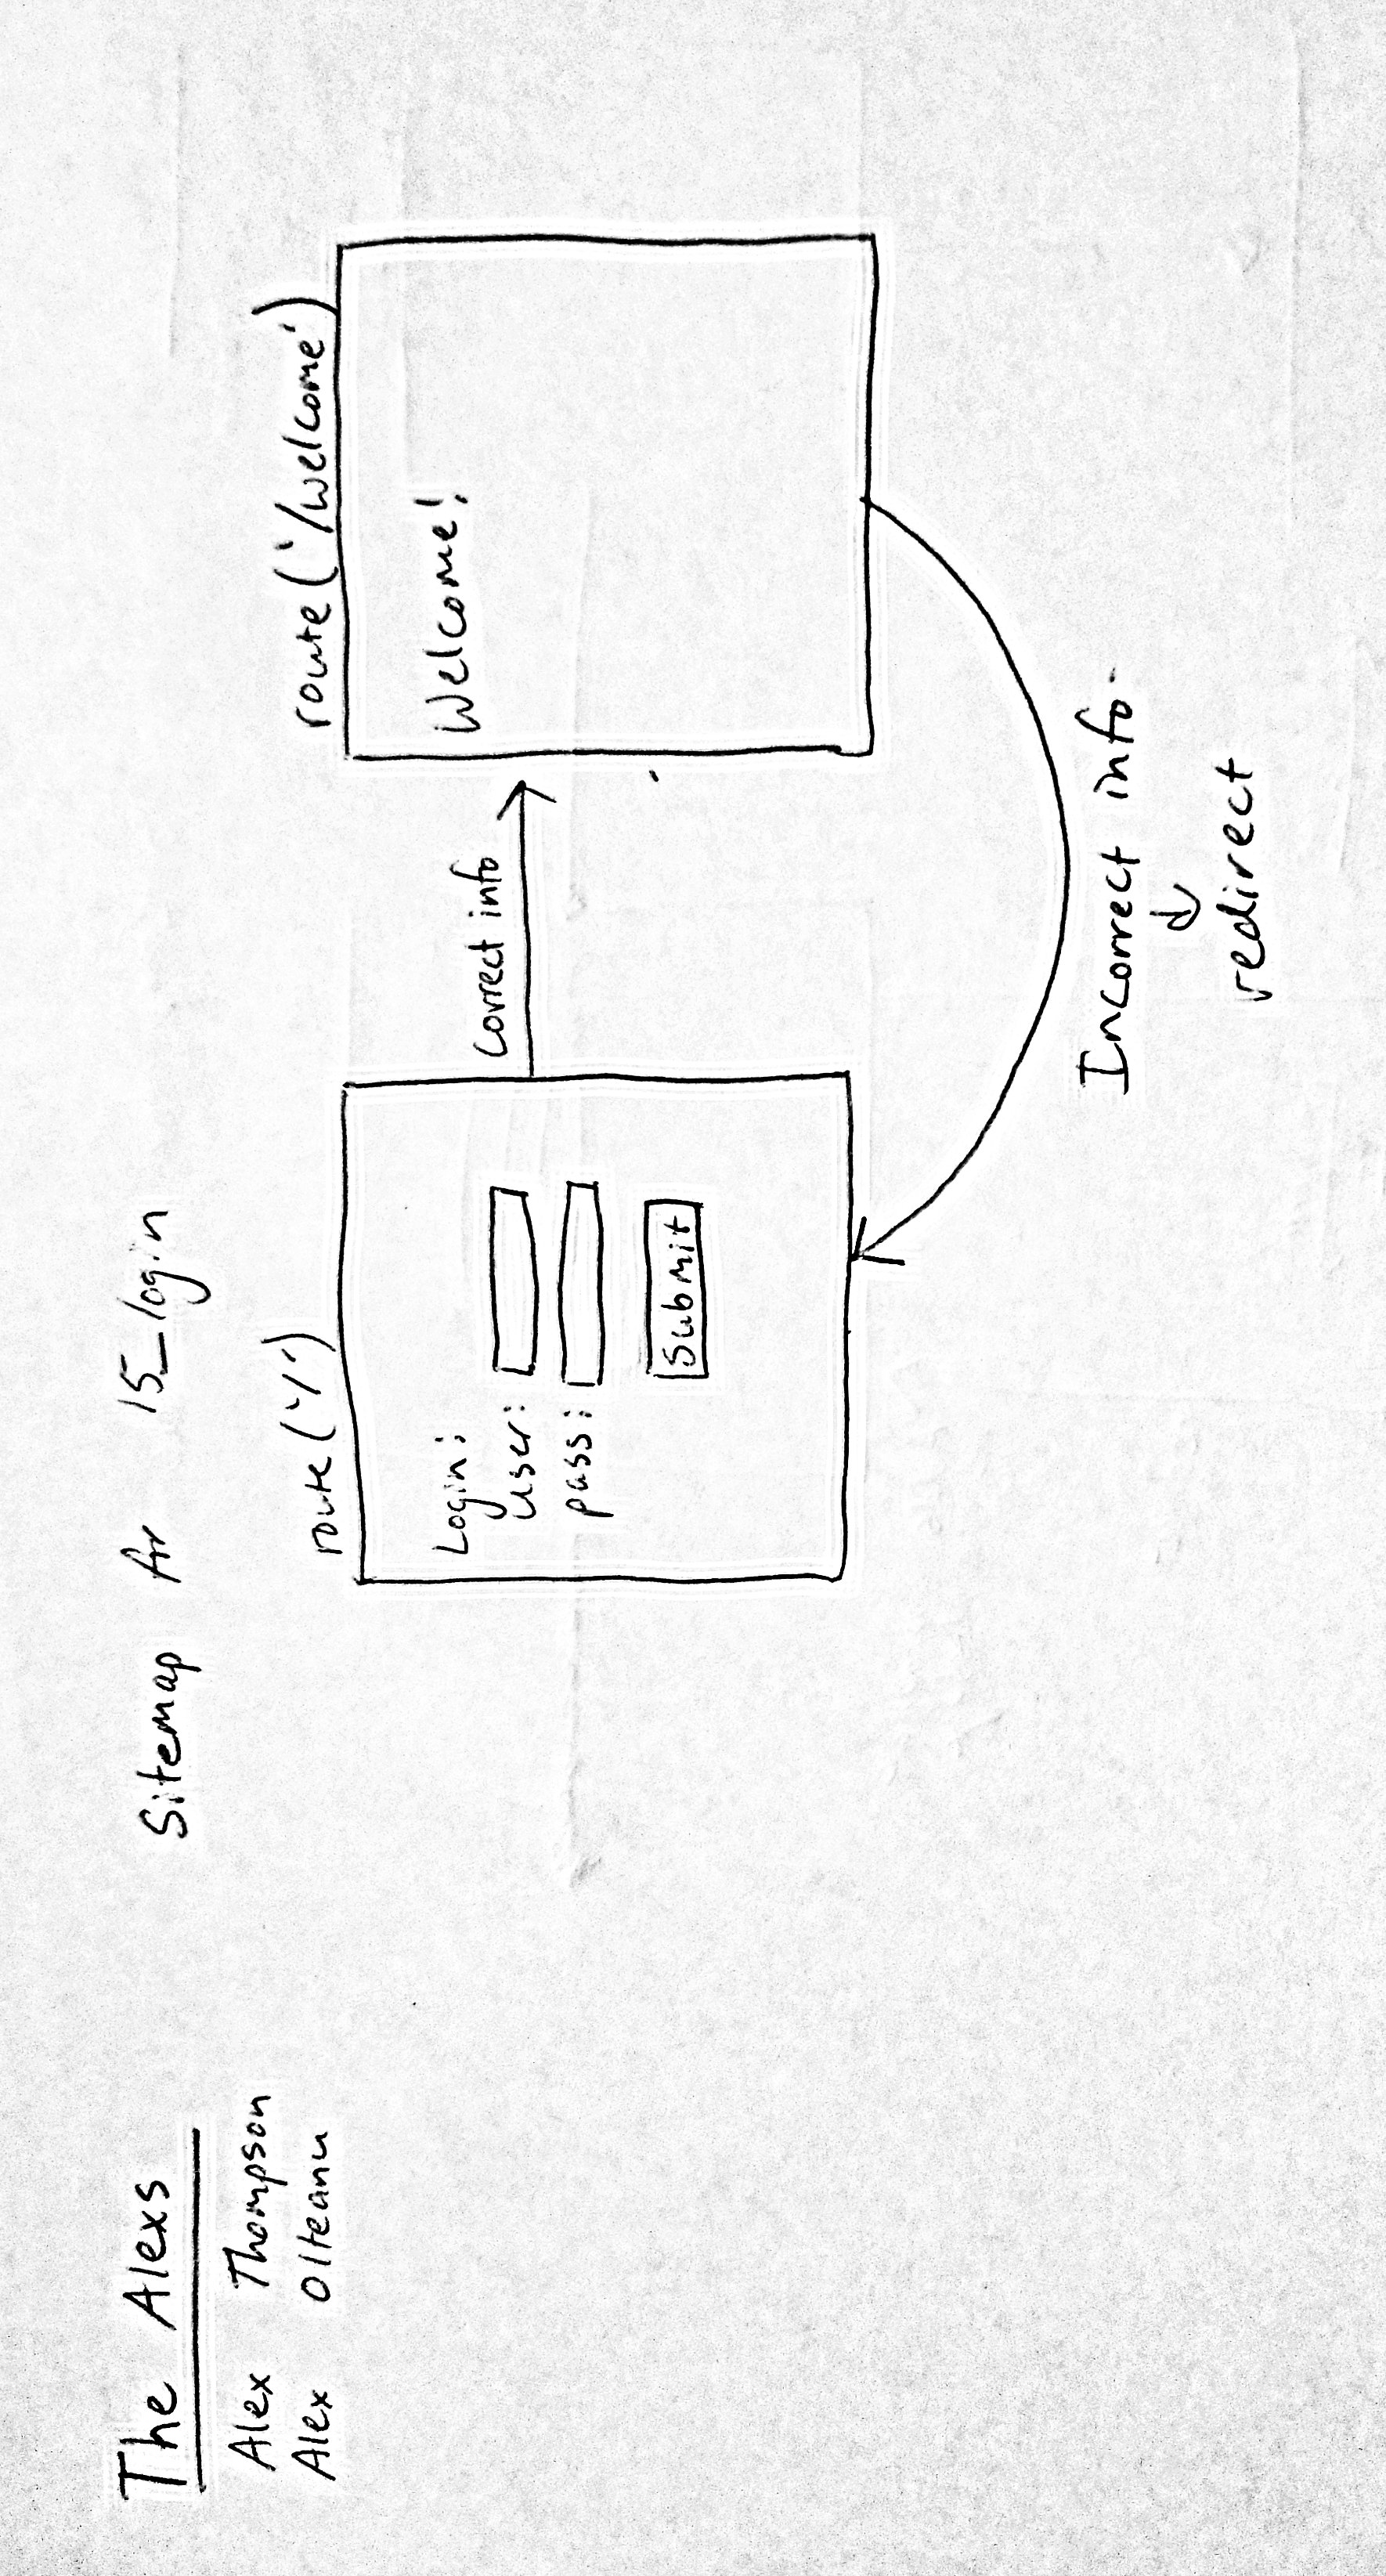 The Alexs
Alex Thompson
Alex Olteanu
Sitemap for 15_login
route('/')
Login:
user:
pass:
Submit
correct info
route('/welcome')
Welcome!
Incorrect info.
redirect